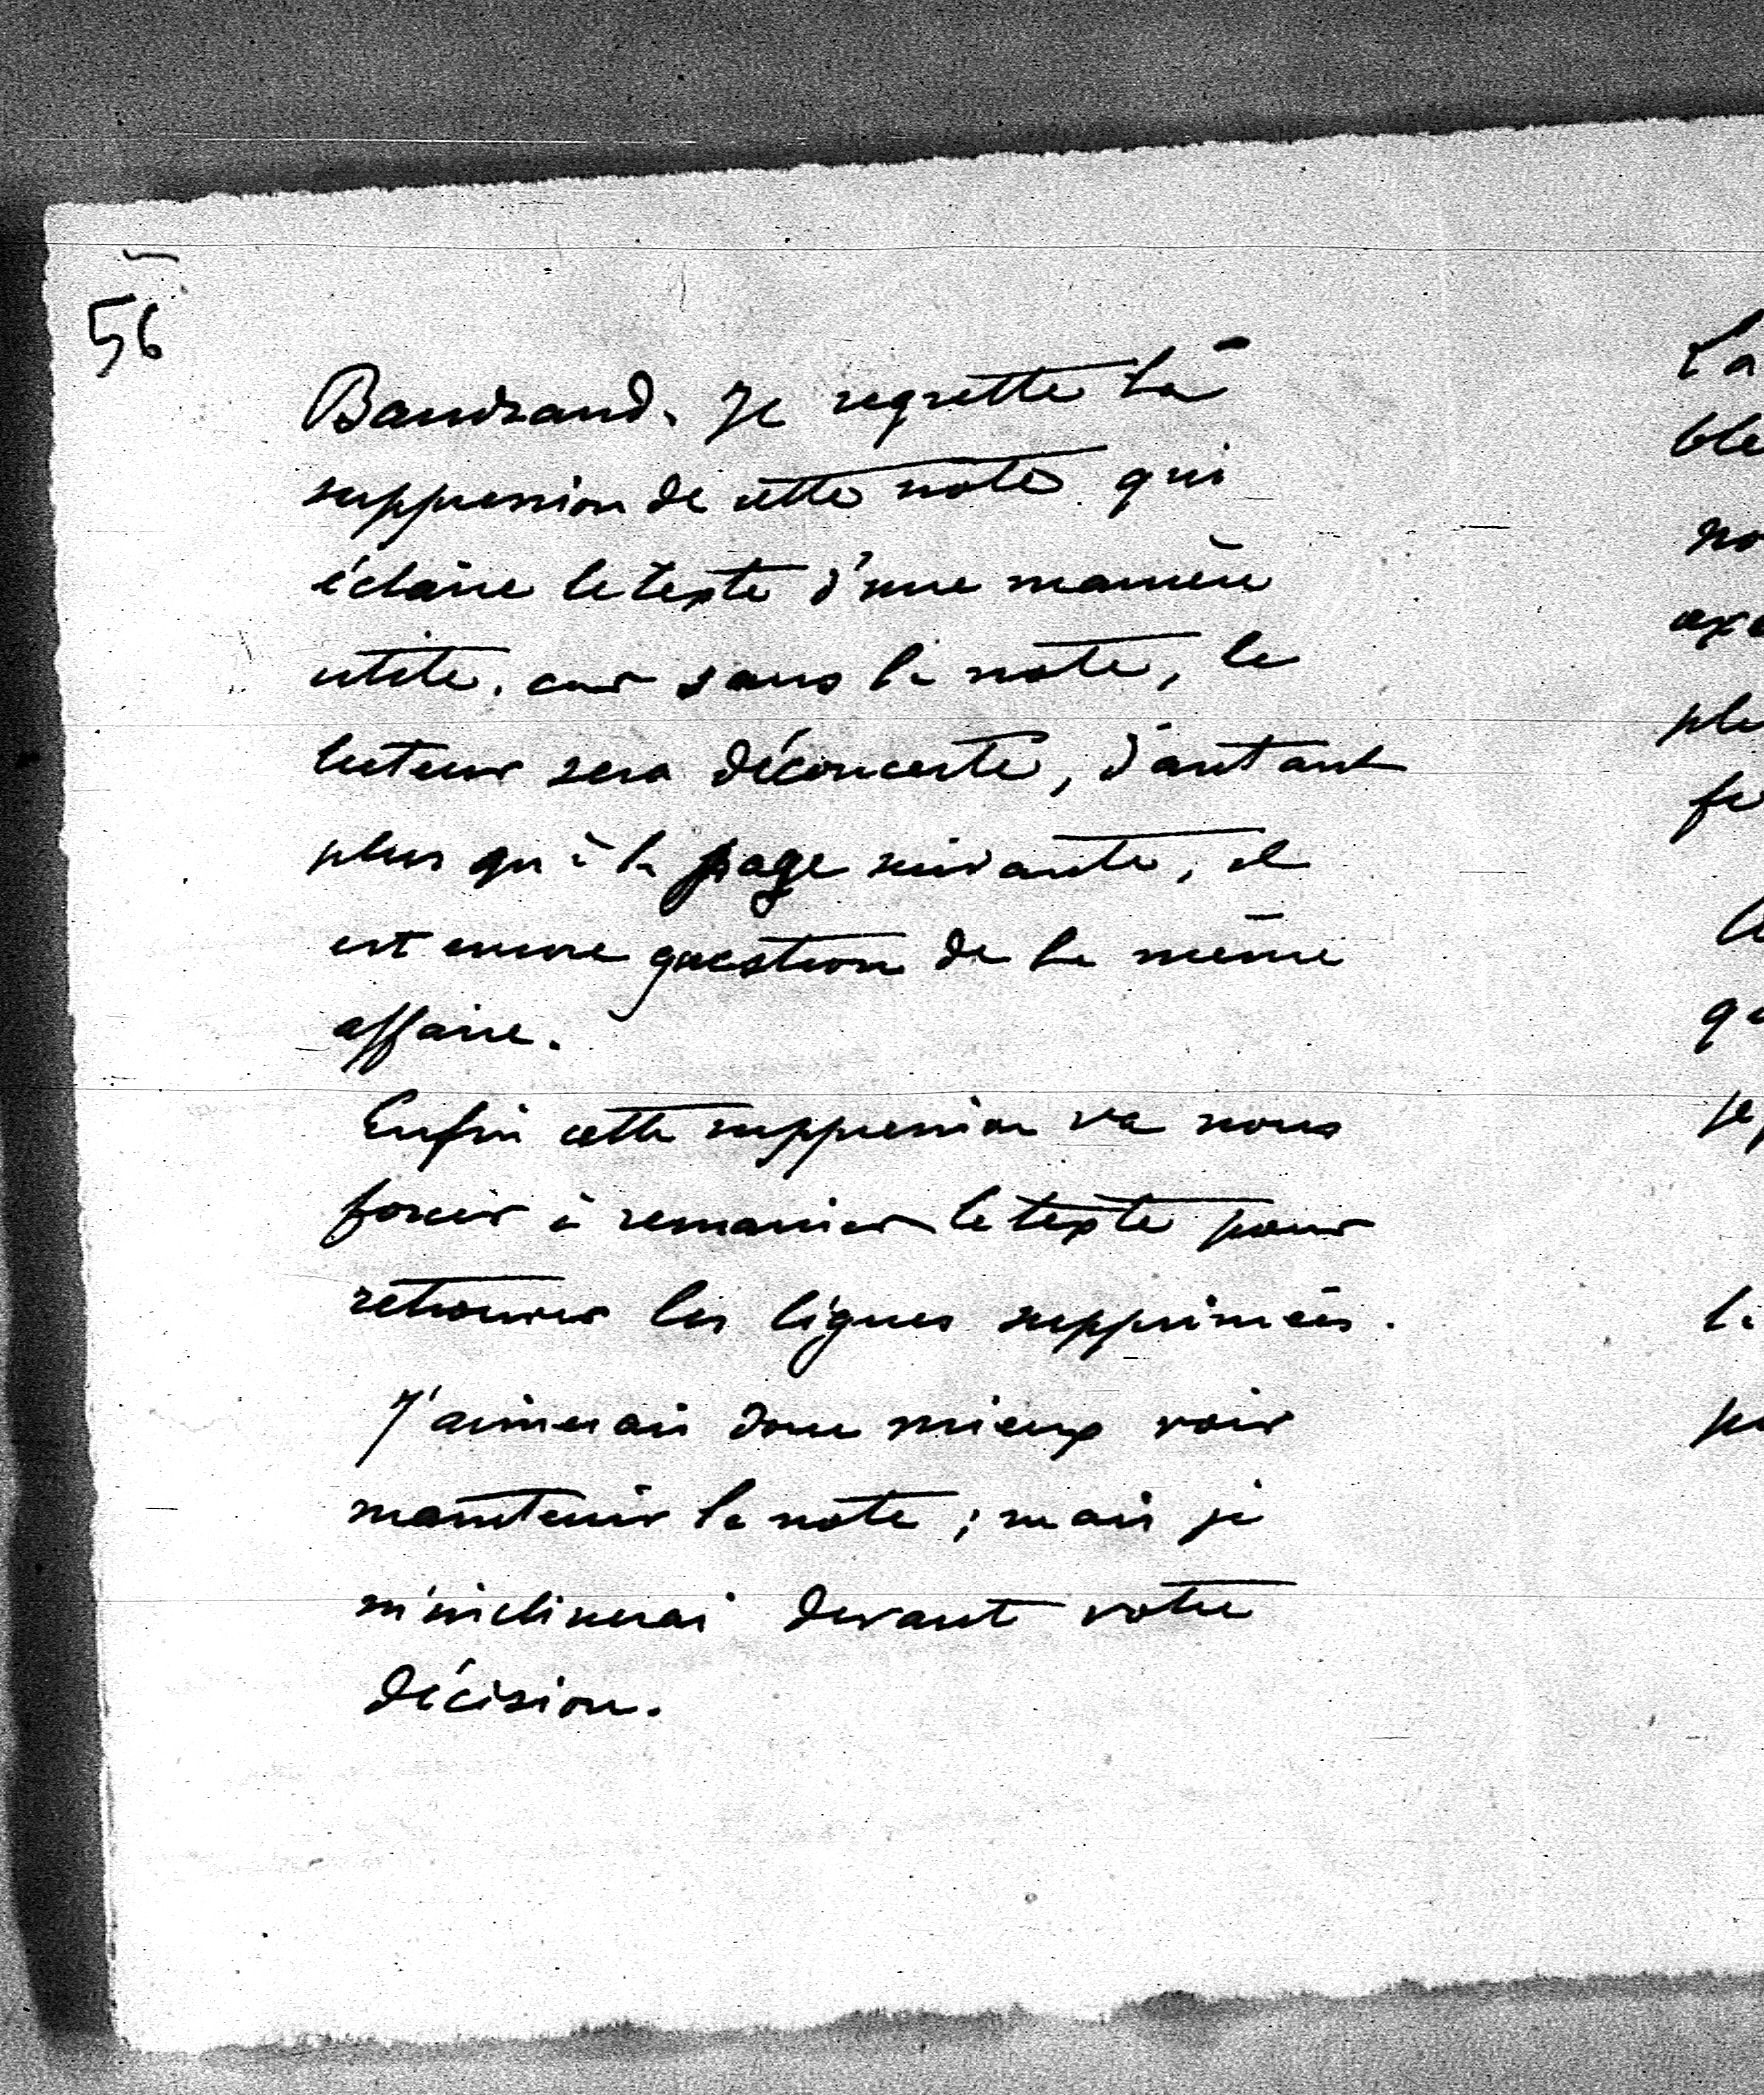 56
Baudrand. Je regrette la
suppression de cette note qui
éclaire le texte d'une manière
utile. car sans la note, le
lecteur sera déconcerté, d'autant
plus qu'à la page suivante, il
est encore question de la même
affaire.
Enfin cette suppression va nous
forcer à remanier le texte pour
retrouver les lignes supprimées.
J'aimerais donc mieux voir
maintenir la note ; mais je
m'inclinerai devant votre
décision.